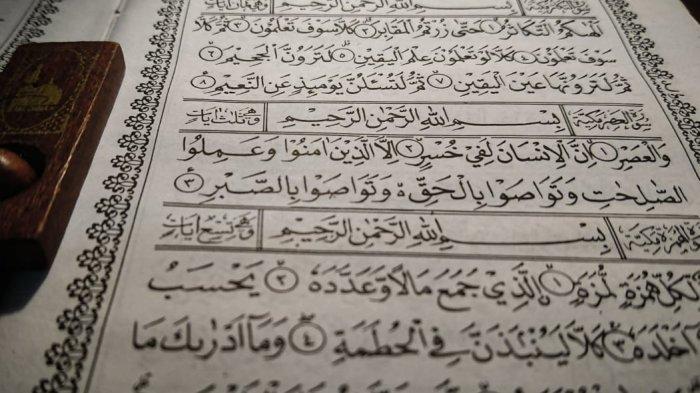 بِسْمِ اللهِ الرَّحْمٰنِ الرَّحِيْمِ
اَلْهٰىكُمُ التَّكَاثُرُۙ ١ حَتّٰى زُرْتُمُ الْمَقَابِرَۗ ٢ كَلَّا سَوْفَ تَعْلَمُوْنَۙ ٣ ثُمَّ كَلَّا
سَوْفَ تَعْلَمُوْنَۗ ٤ كَلَّا لَوْ تَعْلَمُوْنَ عِلْمَ الْيَقِيْنِۗ ٥ لَتَرَوُنَّ الْجَحِيْمَۙ ٦
ثُمَّ لَتَرَوُنَّهَا عَيْنَ الْيَقِيْنِۙ ٧ ثُمَّ لَتُسْـَٔلُنَّ يَوْمَىِٕذٍ عَنِ النَّعِيْمِ ٨
سورة العصر مكية بِسْمِ اللهِ الرَّحْمٰنِ الرَّحِيْمِ وهي ثلث ايات
وَالْعَصْرِۙ ١ اِنَّ الْاِنْسَانَ لَفِيْ خُسْرٍۙ ٢ اِلَّا الَّذِيْنَ اٰمَنُوْا وَعَمِلُوا
الصّٰلِحٰتِ وَتَوَاصَوْا بِالْحَقِّ ەۙ وَتَوَاصَوْا بِالصَّبْرِ ٣
الهمزة مكية بِسْمِ اللهِ الرَّحْمٰنِ الرَّحِيْمِ وهي تسع ايات
لِّكُلِّ هُمَزَةٍ لُّمَزَةٍۙ ١ ۨالَّذِيْ جَمَعَ مَالًا وَّعَدَّدَهٗۙ ٢ يَحْسَبُ
اَخْلَدَهٗۚ ٣ كَلَّا لَيُنْۢبَذَنَّ فِى الْحُطَمَةِۖ ٤ وَمَآ اَدْرٰىكَ مَا